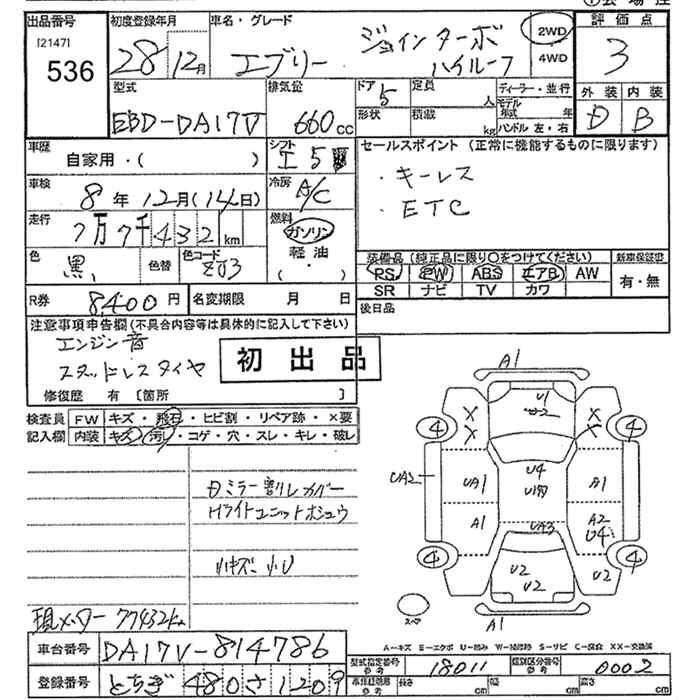 出品番号
[2147]
536
初度登録年月
28年12月
車名・グレード
エブリー
ジョインターボ
ハイルーフ
2WD
4WD
評価点
3
外装 内装
D B
型式
EBD-DA17V
排気量
660cc
ドア
5
形状
定員
人
積載
kg
ディーラー・並行
モデル年式 年
ハンドル 左・右
車歴
自家用・( )
シフト
I5
セールスポイント (正常に機能するものに限ります)
・キーレス
・ETC
車検
8年12月(14日)
冷房
A/C
走行
7万7千432km
燃料
ガソリン
軽油
・( )
色
黒
色替
色コード
ZJ3
装備品 (純正品に限り○をつけてください)
PS PW ABS エアB AW
SR ナビ TV カワ
新車保証書
有・無
R券
8400円
名変期限 月 日
後日品
注意事項申告欄(不具合内容等は具体的に記入して下さい)
エンジン音
スタッドレスタイヤ
修復歴 有 [箇所 ]
初出品
検査員記入欄
FW キズ・飛石・ヒビ割・リペア跡・×要
内装 キズ・汚レ・コゲ・穴・スレ・キレ・破レ
Dミラー割レカバー
Hライトユニットホシュウ
小キズ 小U
現メーター 77432km
A1
U1
U2
X
X
X
X
4
4
UA2
UA1
U4
A1
A1
UA3
A2
U4
4
4
U2
U2
U2
A1
スペア
A-キズ E-エクボ U-凹み W-補修跡 S-サビ C-腐食 XX-交換済
車台番号
DA17V-814786
登録番号
とちぎ 480さ1209
型式指定番号
参考
18011
類別区分番号
参考
0002
長さ
cm
幅
cm
高さ
cm